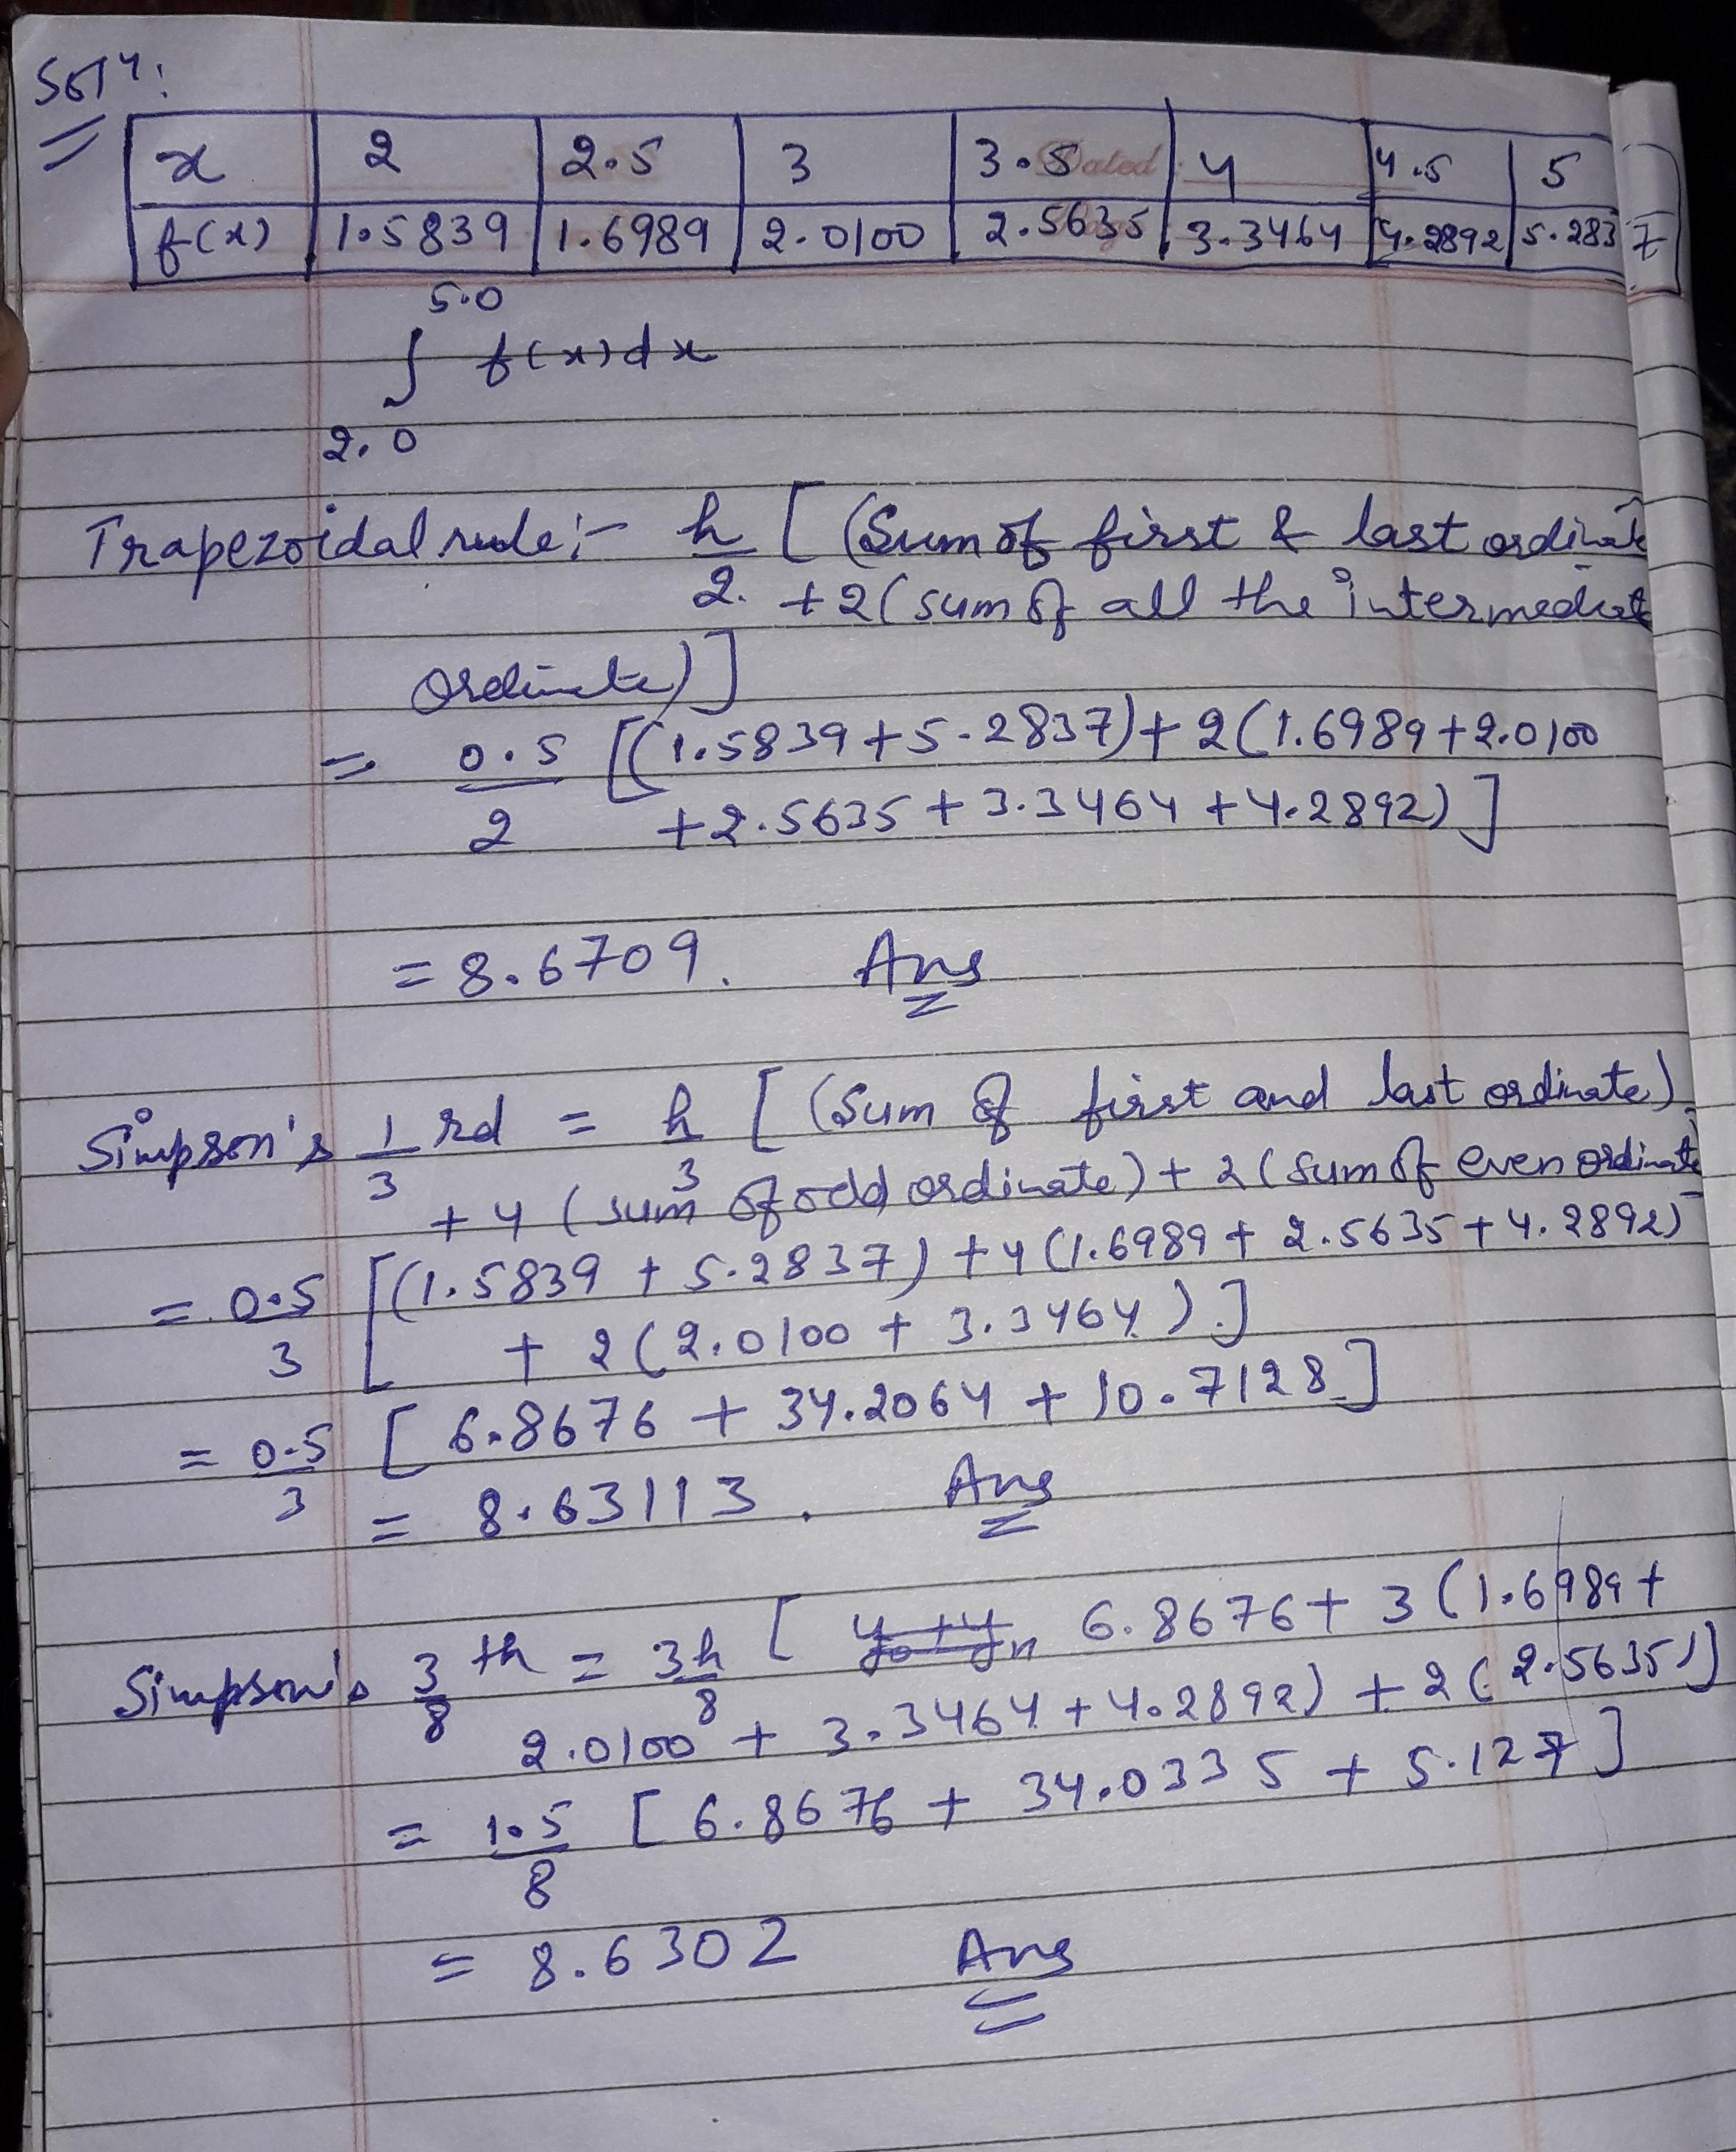 Solⁿ:
x 2 2.5 3 3.5 4 4.5 5
f(x) 1.5839 1.6989 2.0100 2.5635 3.3464 4.2892 5.2837
5.0
∫ f(x)dx
2.0
Trapezoidal rule:- h/2 [(Sum of first & last ordinate
+2(sum of all the intermediate
ordinate)]
= 0.5/2 [(1.5839+5.2837)+2(1.6989+2.0100
+2.5635+3.3464+4.2892)]
= 8.6709. Ans
Simpson's 1/3 rd = h/3 [(Sum of first and last ordinate)
+4 (sum of odd ordinate)+2(sum of even ordinate
= 0.5/3 [(1.5839 + 5.2837)+4(1.6989+2.5635+4.2892)
+ 2(2.0100 + 3.3464).]
= 0.5/3 [6.8676 + 34.2064 + 10.7128]
= 8.63113. Ans
Simpson's 3/8 th = 3h/8 [ y₀+yₙ 6.8676+3(1.6989+
2.0100 + 3.3464+4.2892)+2(2.5635)]
= 1.5/8 [6.8676 + 34.0335 + 5.127]
= 8.6302 Ans